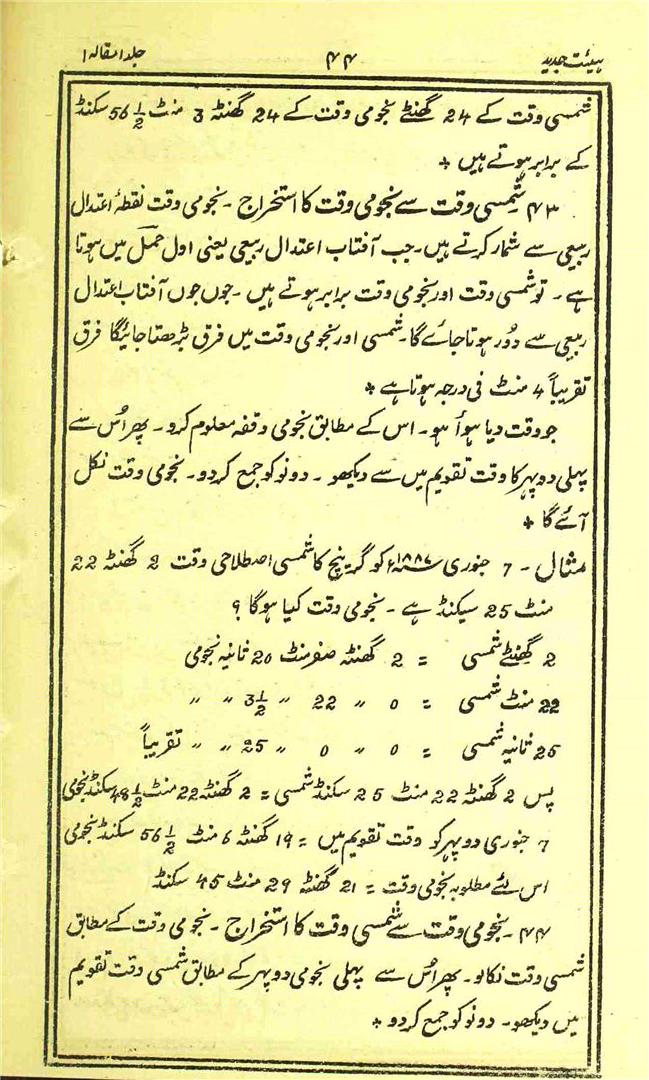 ہیئت جدید ۴۴ جلد ۱ مقالہ ۱
شمسی وقت کے 24 گھنٹے نجومی وقت کے 24 گھنٹہ 3 منٹ 56½ سکنڈ
کے برابر ہوتے ہیں ٭
۴۳ شمسی وقت سے نجومی وقت کا استخراج ۔ نجومی وقت نقطۂ اعتدال
ربیعی سے شمار کرتے ہیں۔ جب آفتاب اعتدال ربیعی یعنی اول حمل میں ہوتا
ہے ۔ تو شمسی وقت اور نجومی وقت برابر ہوتے ہیں ۔ جوں جوں آفتاب اعتدال
ربیعی سے دُور ہوتا جائے گا۔ شمسی اور نجومی وقت میں فرق بڑھتا جائیگا فرق
تقریباً 4 منٹ فی درجہ ہوتا ہے ٭
جو وقت دیا ہوأ ہو ۔ اس کے مطابق نجومی وقفہ معلوم کرو ۔ پھر اُس سے
پہلی دوپہر کا وقت تقویم میں سے دیکھو ۔ دونو کو جمع کر دو ۔ نجومی وقت نکل
آئے گا ٭
مثال ۔ 7 جنوری ۱۸۸۷ء کو گرینچ کا شمسی اصطلاحی وقت 2 گھنٹہ 22
منٹ 25 سیکنڈ ہے ۔ نجومی وقت کیا ہوگا ؟
2 گھنٹے شمسی = 2 گھنٹہ صفر منٹ 20 ثانیہ نجومی
22 منٹ شمسی = 0 〃 22 〃 3½ 〃 〃
25 ثانیہ شمسی = 0 〃 0 〃 25 〃 〃 تقریباً
پس 2 گھنٹہ 22 منٹ 25 سکنڈ شمسی = 2 گھنٹہ 22 منٹ 48½ سکنڈ نجومی
7 جنوری دوپہر کو وقت تقویم میں = 19 گھنٹہ 6 منٹ 56½ سکنڈ نجومی
اس لئے مطلوبہ نجومی وقت = 21 گھنٹہ 29 منٹ 45 سکنڈ
۴۴ ۔ نجومی وقت سے شمسی وقت کا استخراج ۔ نجومی وقت کے مطابق
شمسی وقت نکالو ۔ پھر اُس سے پہلی نجومی دوپہر کے مطابق شمسی وقت تقویم
میں دیکھو ۔ دونو کو جمع کر دو ٭